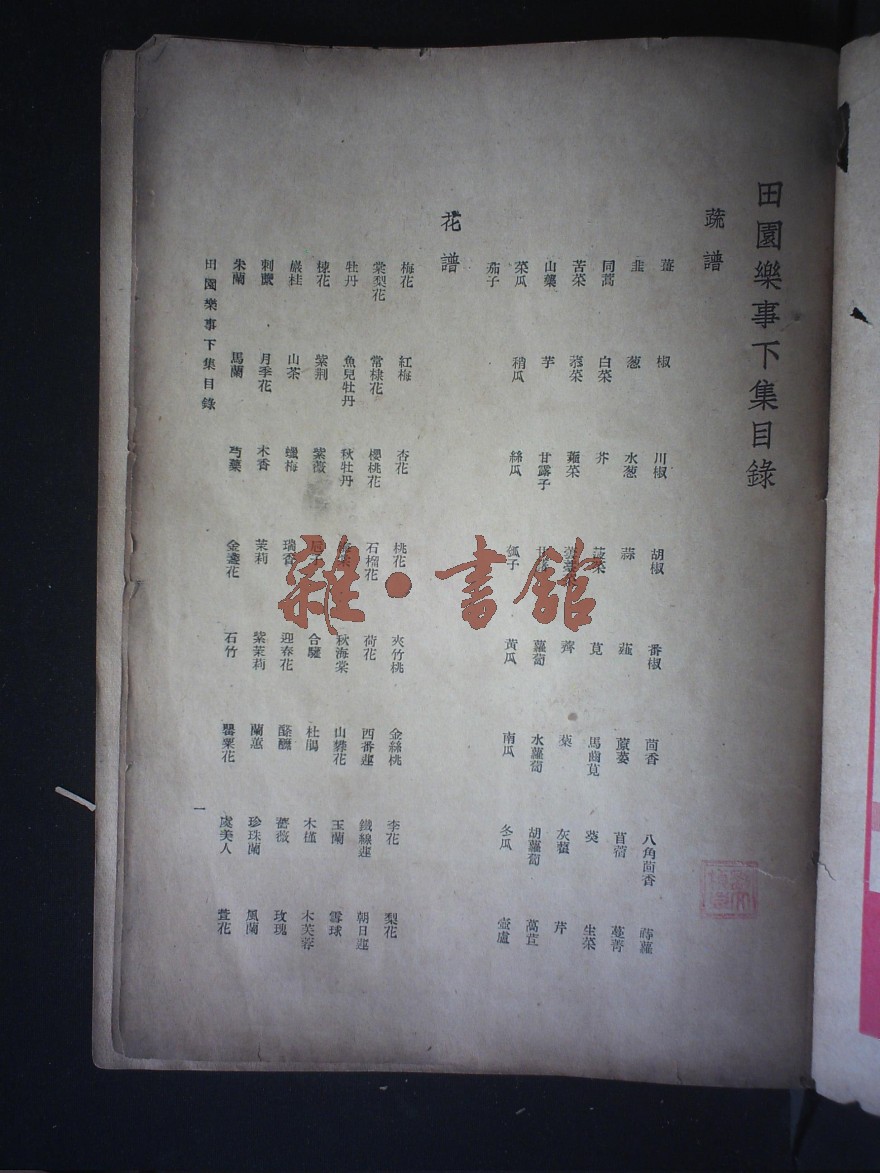 田園樂事下集目錄
蔬譜
薑 椒 川椒 胡椒 番椒 茴香 八角茴香 蒔蘿
韭 葱 水葱 蒜 薤 蒝荽 苜蓿 蔓菁
同蒿 白菜 芥 菠菜 莧 馬齒莧 葵 生菜
苦菜 蕹菜 薺 灰藋 芹
山藥 芋 甘露子 蘿蔔 水蘿蔔 胡蘿蔔 萵苣
菜瓜 稍瓜 絲瓜 瓠子 黃瓜 南瓜 冬瓜 壺盧
茄子
花譜
梅花 紅梅 杏花 桃花 夾竹桃 金絲桃 李花 梨花
棠梨花 常棣花 櫻桃花 石榴花 荷花 西番蓮 鐵線蓮 朝日蓮
牡丹 魚兒牡丹 秋牡丹 秋海棠 山礬花 玉蘭 雪球
楝花 紫荆 紫薇 合驩 杜鵑 木槿 木芙蓉
巖桂 山茶 蠟梅 瑞香 迎春花 酴醿 薔薇 玫瑰
刺蘪 月季花 木香 茉莉 紫茉莉 蘭蕙 珍珠蘭 風蘭
朱蘭 馬蘭 芍藥 金盞花 石竹 罌粟花 虞美人 萱花
田園樂事下集目錄
一
雜·書館